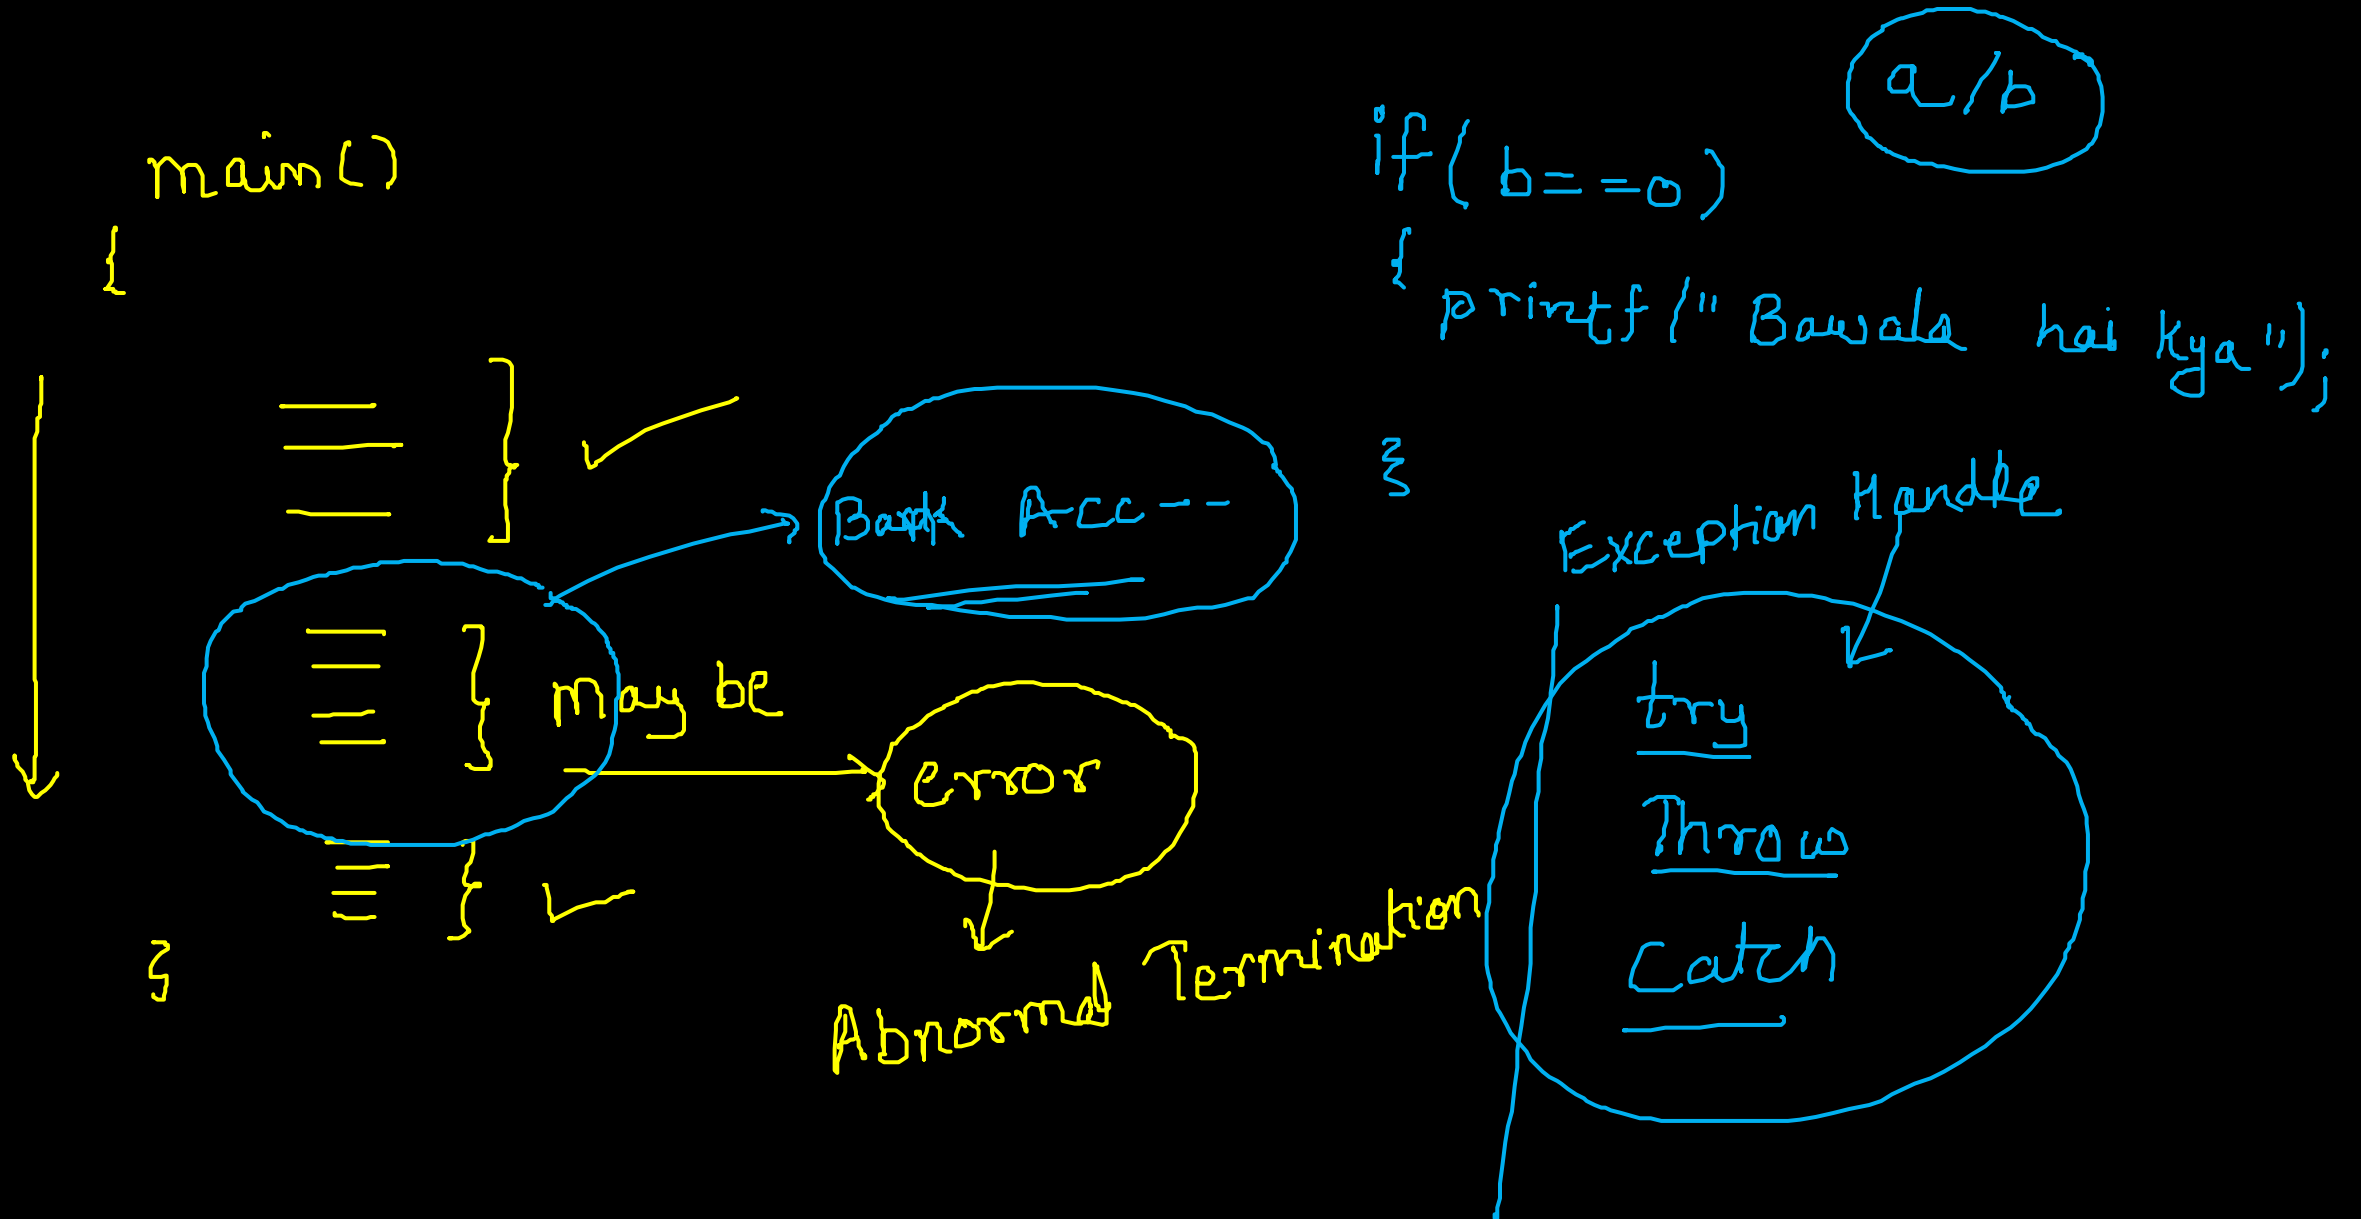 main()
{
}
✓
may be
error
Abnormal Termination
} ✓
}
Bank Acc---
a/b
if( b= ==0)
{
printf("Bawala hai kya");
}
Exception Handle
try
Throw
Catch